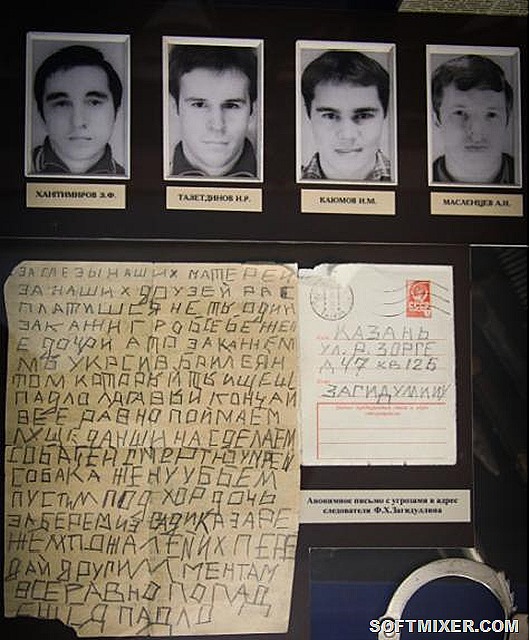 ХАНТИМИРОВ З.Ф.
ТАЗЕТДИНОВ И.Р.
КАЮМОВ И.М.
МАСЛЕНЦЕВ А.Н.
ЗА СЛЕЗЫ НАШИХ МАТЕРЕЙ
ЗА НАШИХ ДРУЗЕЙ РАС
ПЛАТИШСЯ НЕ ТЬ ОДИН
ЗАКАЖИ ГРОБ СЕБЕ ЖЕНЕ
Е ДОЧРИ А ТО ЗАКАЖЕМ
МЬ УКРАСИВ БРИЛЕЯН
ТОМ КАТОРЬЙ ТЬ ИЩЕШ
ПАДЛО ЛЕГАВЬЙ КОНЧАЙ
ВСЕ РАВНО ПОЙМАЕМ
СОБАКА ЖЕНУ УБЬЕМ
ПУСТИМ ПОД ХОР ДОЧЬ
ЗАБЕРЕМ ИЗ ЗАРЕ
ЖЕМ ПОЖАЛЕЙ ИХ ПЕРЕ
ДАЙ ДРУГИМ МЕНТАМ
ВСЕ РАВНО ПОПАД
ЕШСЯ ПАДЛО
СССР
КАЗАНЬ
УЛ. Р. ЗОРГЕ
Д 47 КВ 125
ЗАГИДУЛЛИНУ
Анонимное письмо с угрозами в адрес
следователя Ф.Х.Загидуллина
SOFTMIXER.COM